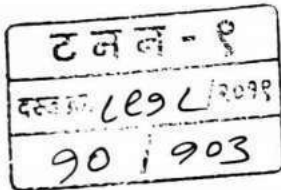 ट न न - १
दस्त क्र. ८९१८/२०१९
१० / १०३